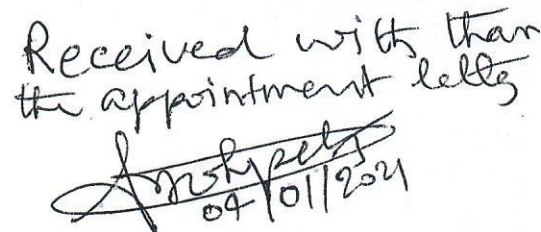 Received with than
the appointment letter
04/01/2021